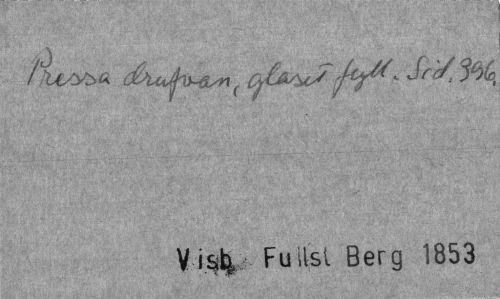 Pressa drufvan, glaset fyll. Sid. 396.
Visb Fullst Berg 1853